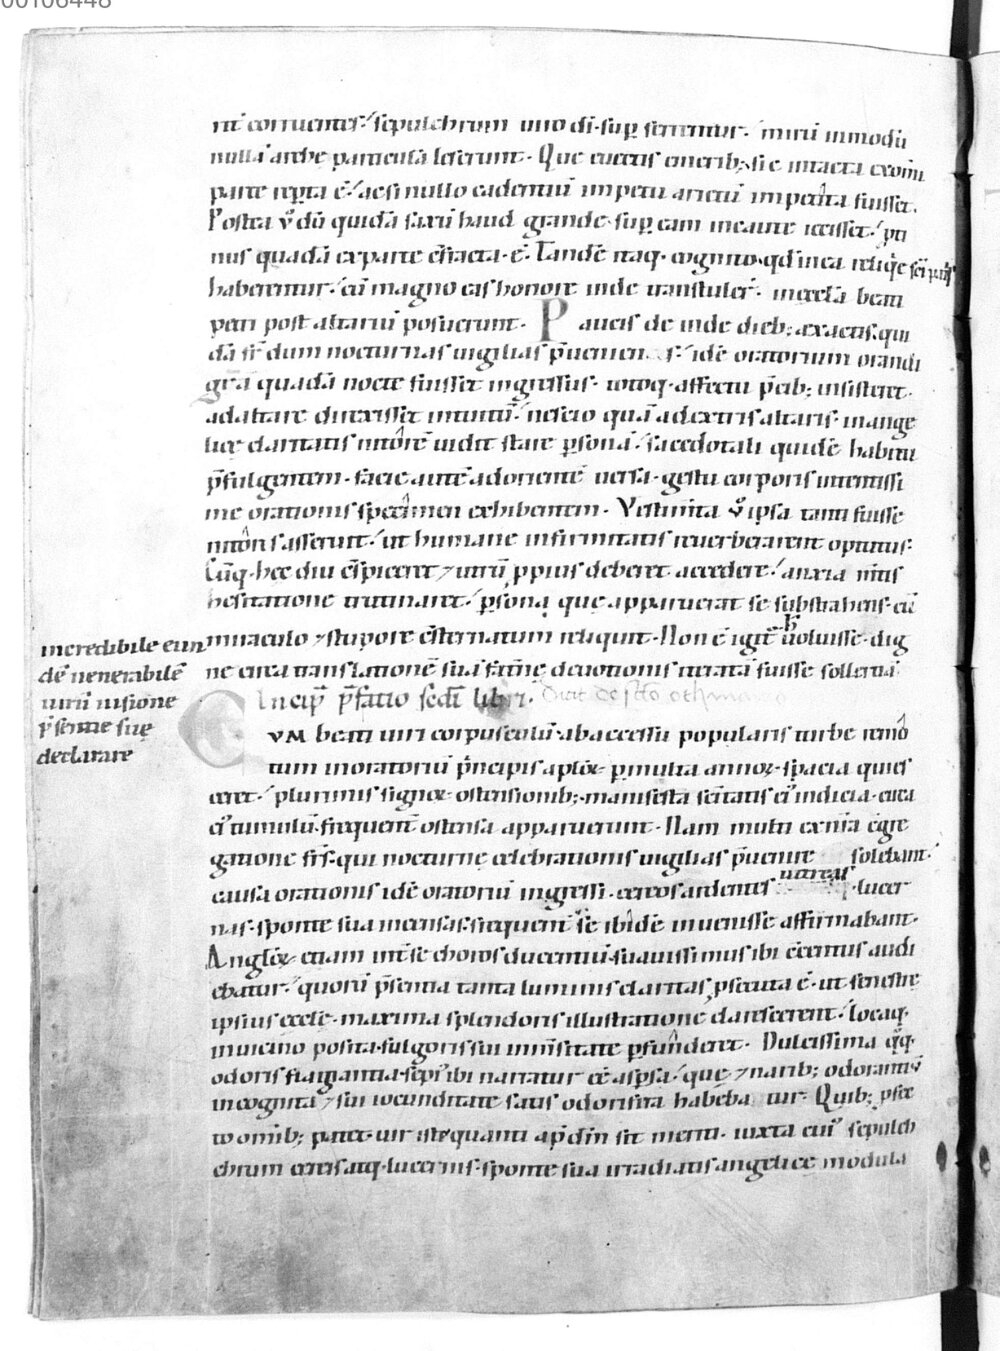 00106448
nt̄ corruentes. sepulchrum uiuo dī. sup̱ serrentur. mirū inmodū
nullā arche particulā leserunt. Que cunctis cinerib; sic intacta exoīni
parte rep̱ta ē. ac si nullo cadentiū impetu arietū impetita fuisset.
Postea v̊ dū quidā saxū haud grande sup̱ eam incaute iecisset. pti
nus quadā ex parte c̄fracta ē. Tandē itaq. cognito qd̄ in ea reliq̄e sc̄i patris
haberentur. cū magno eas honore inde transtuler̄. in eccl̄a beati
petri post altariū posuerunt. Paucis de inde dieb; exactis. qui
dā fr̄ dum nocturnas uigilias p̄uenien s. idē oratorium orandi
gr̄a quadā nocte fuisset ingressus. totoq. affectu p̄cib; insisteret.
ad altare direxisset intuitū. nescio quā ad extris altaris. in ange
licę claritatis nitōrē uidit stare p̱sonā. sacerdotali quidē habitu
p̄fulgentem. facie autē ad orientē uersa. gestu corporis intentissi
me orationis specimen exhibentem. Vestimīta v̊ ipsa tanti fuisse
nitoris asserunt. ut humane infirmitatis reuerberarent optutus.
Cūq. hęc diu c̄spiceret ⁊ utrū p̱pius deberet accedere. anxia m̄tis
hesitatione trutinaret. p̱sona que apparuerat se substrahens. cū
miraculo ⁊ stupore c̄sternatum reliquit. Non ē igit̄ h uoluisse dig
incredibile eun
dē uenerabilē
uirū uisione
p̄sentię suę
declarare
ne circa translationē suā fr̄nę deuotionis iteratā fuisse sollertiā.
Incip̄ p̄fatio sec̄dī libri. Quit de sc̄to othmaro
CVM beati uiri corpusculū ab accessu popularis turbe remo
tum in oratoriū p̄ncipis ap̄lōꝝ p̱ multa annoꝝ spacia quies
ceret. plurimis signoꝝ ostensionib; manifesta sc̄itatis ei᷒ indicia circa
ei᷒ tumulū frequent̄ ostensa apparuerunt. Nam multi ex nr̄a c̄gre
gatione fr̄s. qui nocturnę celebrationis uigilias p̄uenire solebant.
causa orationis idē oratoriū ingressi. cereos ardentes uitreas. lucer
nas. sponte sua incensas. frequent̄ se ibidē inuenisse affirmabant.
Angłoꝝ etiam int̄ se choros ducentiū suauissimus ibi c̄centus audi
ebatur. quorū p̄sentia tanta luminis claritas p̱secuta ē. ut fenestre
ipsius eccl̄ę. maxima splendoris illustratione clarescerent. locaq.
in uicino posita. fulgoris sui inm̄sitate p̱fūnderet. Dulcissima q̊q.
odoris flagrantia. sep̱᷒ ibi narratur c̄ē asp̱sa. quę ⁊ narib; odorantiū
incognita. ⁊ sui iocunditate satis odorifera habeba tur. Quib; p̱fec
to om̄ib; patet. uir iste quanti ap̱d d̄m sit meriti. iuxta cui᷒ sepulch
chrum cereis atq. lucernis. sponte sua irradiatis angelicę modula